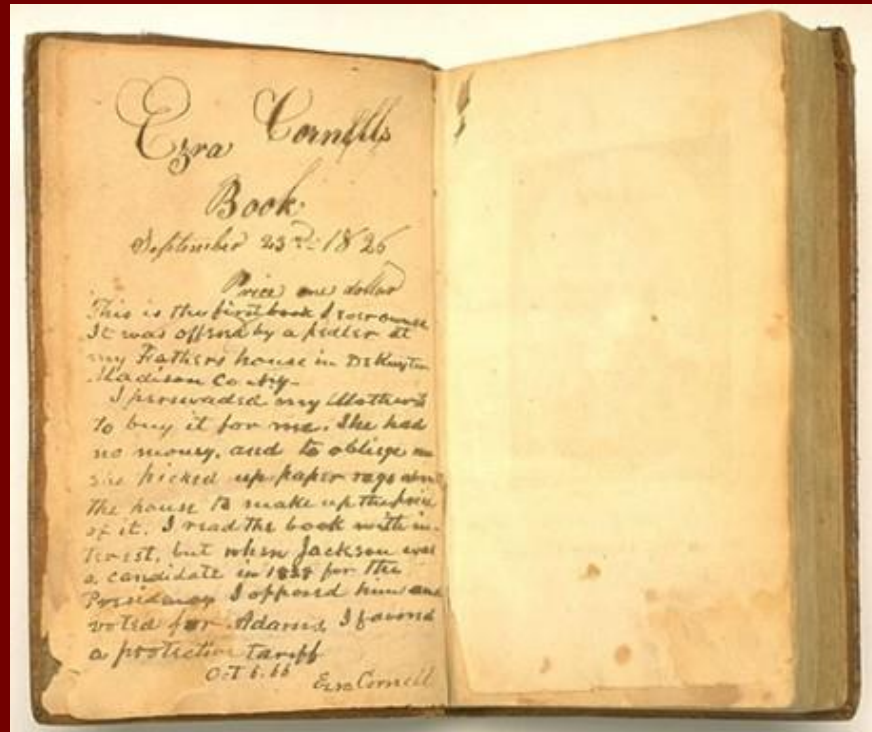 Ezra Cornells
Book
September 23rd 1826
Price one dollar
This is the first book I ever owned
It was offered by a pedler at
my Fathers house in DeRuyter
Madison Co NY-
I persuaded my Mother
to buy it for me. She had
no money, and to obliege me
she picked up paper rags about
the house to make up the price
of it. I read the book with in-
terest, but when Jackson was
a candidate in 1828 for the
Presidency I opposed him and
voted for Adams, I favored
a protective tariff
Oct 6. 66
Ezra Cornell